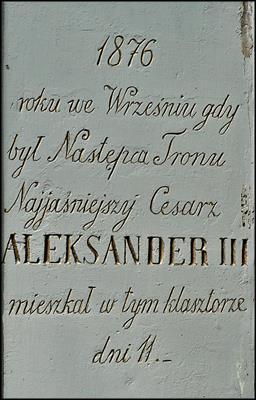 1876
roku we Wrześniu gdy
był Następca Tronu
Najjaśniejszy Cesarz
ALEKSANDER III
mieszkał w tym klasztorze
dni 11._